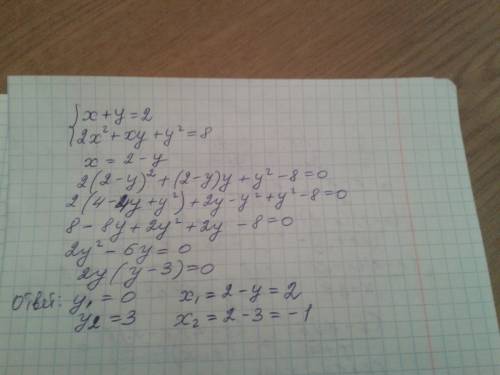 {x+y=2
{2x²+xy+y²=8
x=2-y
2(2-y)²+(2-y)y+y²-8=0
2(4-4y+y²)+2y-y²+y²-8=0
8-8y+2y²+2y-8=0
2y²-6y=0
2y(y-3)=0
Ответ: y₁=0 x₁=2-y=2
y₂=3 x₂=2-3=-1